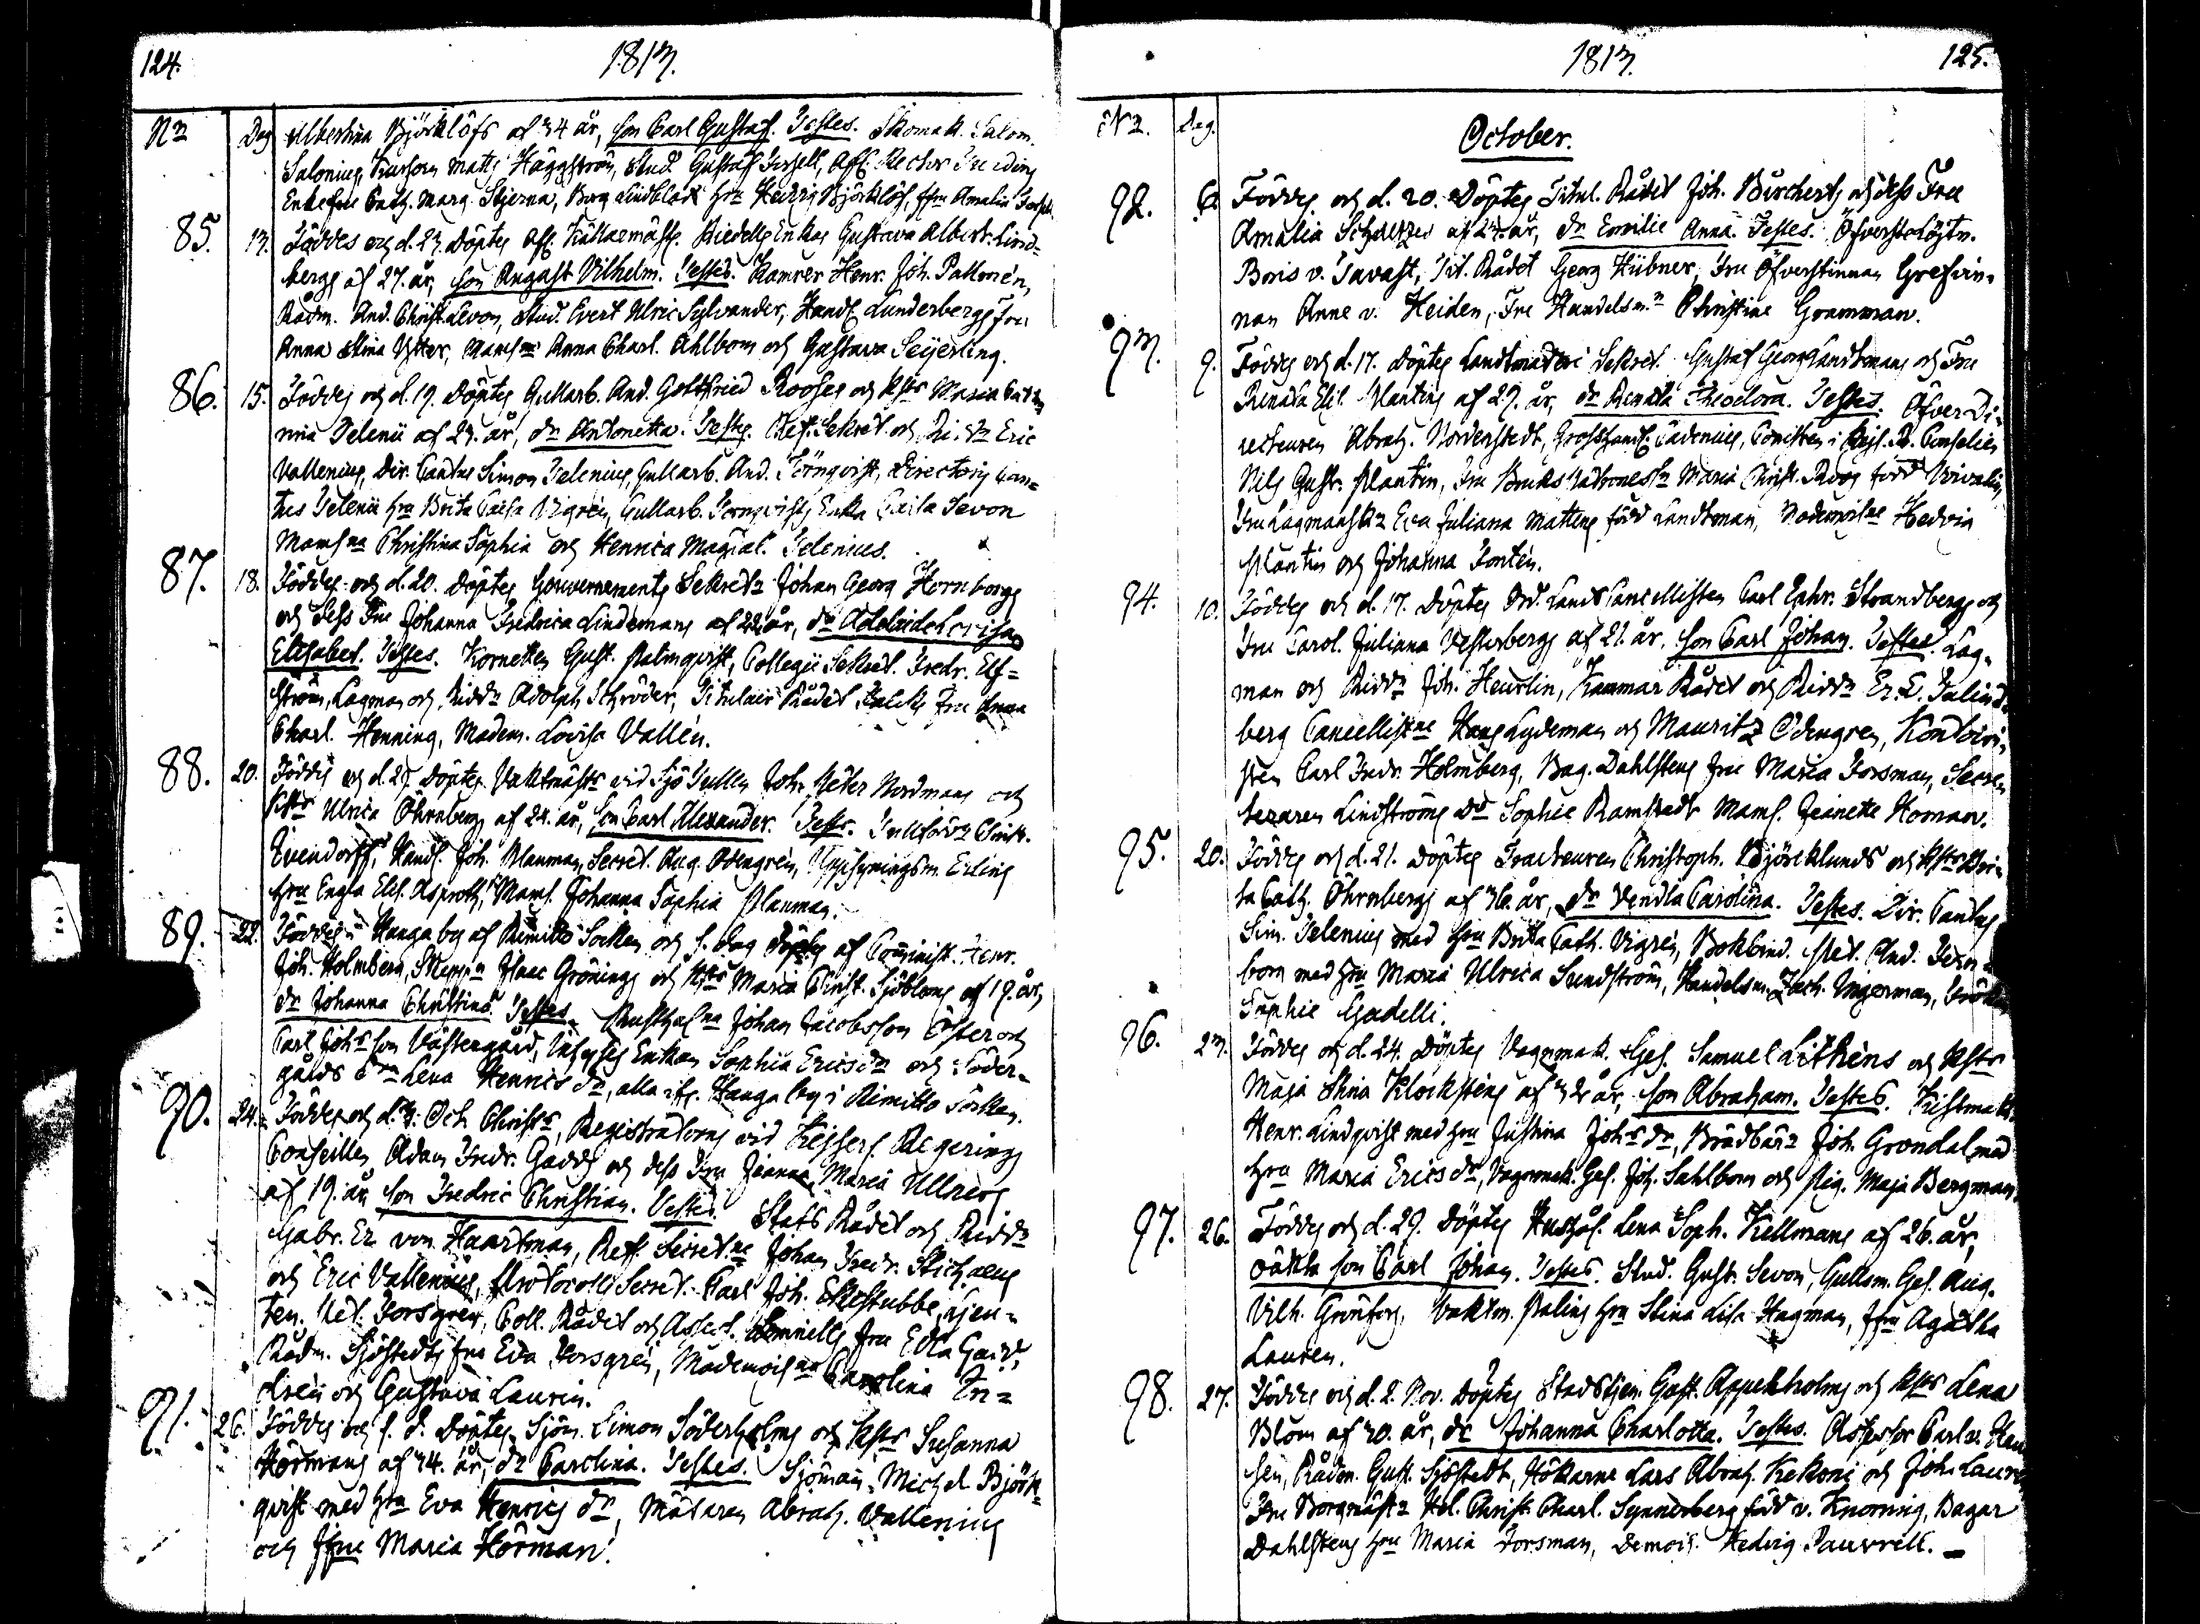 124.
1813.
Nr
Dag
Albertina Björklöfs af 34 år, son Carl Gustaf. Testes. Skomak. Salom.
Salonius, Matts Häggström, Stud. Gustaf Rector
Enkefru Cath. Marg. Stjerna, Borg. Lindblads hru Hedvig Björklöf, Jfru Amalia
85.
13.
Föddes och d. 23. Döptes Källaremäst. Enkas Gustava Albert. Lind-
bergs af 27. år, son August Vilhelm. Testes. Kamrer Henr. Joh. Palmén,
Rådm. And. Christ. Levon, Stud. Evert Ulric Sylvander, Handl. Lunderbergs Fru
Anna Stina Ytter, Mamslle Anna Charl. Ahlbom och Gustava Seijerling.
86.
15.
Föddes och d. 19. Döptes Gullarb. And. Gottfried Rooses och Hstr Maria Catha
rina Telenii af 23. år, dr Antonetta. Testes. Ref. Sekret. och Eric
Vallenius, Dir. Cantus Simon Telenius, Gullarb. And. Törnqvist, Directoris Can=
tus Telenii hru Brita Caisa Vigrén, Gullarb. Törnqvists Enka Caisa Sevon
Mamslla Christina Sophia och Henrica Magdal. Telenius.
87.
18.
Föddes och d. 20. Döptes Gouvernements Sekret. Johan Georg Hornborgs
och dess Fru Johanna Fredrica Lindemans af 22 år, dr Adelaide Lovisa
Elisabet. Testes. Kornetten Gust. Palmqvist, Collegii Sekret. Fredr. Elf=
ström, Lagman och Riddr Adolph Schröder, Titulair Rådet Falcks Fru Anna
Charl. Henning, Madem. Lovisa Vallén.
88.
20.
Föddes och d. 27. Döptes Vaktmästr vid Sjö Tullen Joh. Peter Nordmans och
Hstr Ulrica Öhrnbergs af 24. år, son Carl Alexander. Testes. Christ.
Evendorff, Handl. Joh. Planman, Secret. Aug. Odengrén, Uppsyningsm. Erling
hru Engla Elis. Asproth, Maml. Johanna Sophia Planman.
89.
22.
Föddes i Hanga by af Rimitto Socken och s. dag Döptes af Comminist. Henr.
Joh. Holmberg, Isaac Grönings och Hstr Maria Christ. Sjöbloms af 19. år,
dr Johanna Christina. Testes. Johan Jacobsson Öster och
Carl Johsson Västergård, Enkan Sophia Ericsdr och Söder-
gårds Lena Henricsdr, alla ifr. Hanga by i Rimitto Socken.
90.
24.
Föddes och d. 3. Oct. Christs, Registratorns vid Kejserl. Regerings
Conseillen Adam Fredr. Gadds och dess Fru Jeanna Maria Ullners
af 19. år son Fredric Christian. Testes. Stats Rådet och Riddr
Gabr. Er. von Haartman, Ref. Secretne Johan Fredr. Stichæus
och Eric Vallenius, Protocolls Secret. Carl Joh. Ekestubbe,
ten. Ulr. Forsgren, Coll. Rådet och Assess. fru Edla Gadd,
Rådm. Sjöstedts fru Eva Forsgrén, Mademoislna Carolina
och Gustava Laurin.
91.
26.
Föddes och s. d. Döptes Sjöm. Simon Söderholms och Hstr Susanna
Hörmans af 34. år, dr Carolina. Testes. Sjöman Michel Björk-
qvist med hru Eva Henrics dr, Mätaren Abrah. Vallenius
och Jfru Maria Hörman.
1813.
125.
Nr.
Dag.
October.
92.
6.
Föddes och d. 20. Döptes Titul. Rådet Joh. Burcherts och dess Fru
Amalia af 23. år, dr Emilie Anna. Testes. Öfverstelöjtn.
Boris v. Tavast, Tit. Rådet Georg Hübner, Fru Öfverstinnan Grefvin-
nan Anne v. Heiden, Fru Handelsm. Christine Gramman.
93.
9.
Föddes och d. 17. Döptes Landtmäteri Sekret. Gustaf Georg Landtmans och Fru
Renata Elis. Plantins af 29. år, dr Renata Theodora. Testes. Öfver Di-
recteuren Abrah. Nordenstedt, Grosshandl. Cadenius, Copisten i Kejs. R. Conseilen
Nils Gust. Plantin, Fru Bruks Patronessn Maria Christ. Roos född
Fru Eva Juliana Matteus född Landtman, Hedvig
Plantin och Johanna Fontén.
94.
10.
Föddes och d. 17. Döptes Ord. Lands Cancellisten Carl Ephr. Strandbergs och
Fru Carol. Juliana Vesterbergs af 21. år, son Carl Johan. Testes. Lag-
man och Riddr Joh. Heurlin, Kammar Rådet och Riddr Er. E. Tulind-
berg Cancellistne Hans Lydeman och Mauritz Odengren, Kontori-
sten Carl Fredr. Holmberg, Bag. Dahlstens fru Maria Forsman, Secre-
teraren Lindströms Dr Sophie Ramstadt Maml. Jeanette Homan.
95.
20.
Föddes och d. 21. Döptes Tracteuren Christoph. Björcklunds och Hstr Bri-
ta Cath. Öhrnbergs af 36. år, dr Vendla Carolina. Testes. Dir. Cantus
Sim. Telenius med hru Britta Cath. Vigrén, Bokbind. And.
born med hru Maria Ulrica Sundström, Handelsm. Zach. Ungerman, Fröken
Sophie Gadelli.
96.
23.
Föddes och d. 24. Döptes Vagnmak. Ges. Samuel Lithéns och Hstr
Maja Stina Klockstens af 32 år, son Abraham. Testes.
Henr. Lindqvist med hru Justina Johsdr, Brädbär. Joh. Grondal med
hru Maria Ericsdr, Vagnmak. Ges. Joh. Sahlbom och Pig. Maja Bergman.
97.
26.
Föddes och d. 29. Döptes Hushål. Lena Soph. Kellmans af 26. år,
oäkta son Carl Johan. Testes. Stud. Gust. Sevon, Gullsm. Ges. Aug.
Vilh. Grönfors, Vaktm. Palins hru Stina Lisa Hagman, Jfru Agatha
Lauren.
98.
27.
Föddes och d. 2. Nov. Döptes Stadstjen. Gust. Appelholms och Hstr Lena
Blom af 30. år, dr Johanna Charlotta. Testes. Assessor Carl v.
sen, Rådm. Gust. Sjöstedt, Hökarne Lars Abrah. Kekoni och Joh. Lauren
Fru Borgmäst. Hel. Christ. Charl. Synnerberg född v. Knorring, Bagar
Dahlstens hru Maria Forsman, Demois. Hedvig Paurrell.